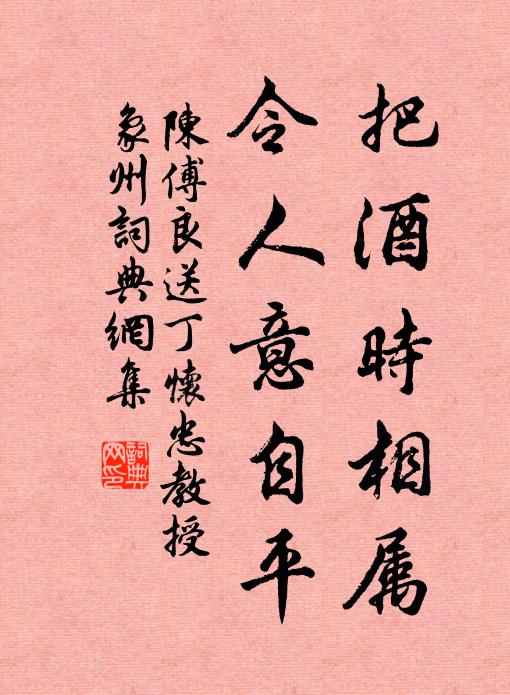 把酒時相属
令人意自平
陳傅良送丁懷忠教授
象州詞典網集
詞典网印